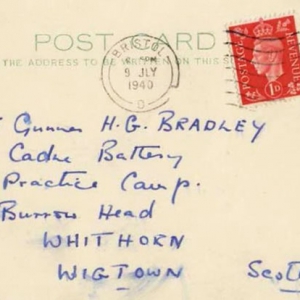 POST CARD
THE ADDRESS TO BE WRITTEN ON THIS
BRISTOL
PM
9 JLY
1940
D
POSTAGE
REVENUE
1D
Gunner H.G. BRADLEY
Cadre Battery
Practice Camp.
Burrow Head
WHITHORN
WIGTOWN
Scot